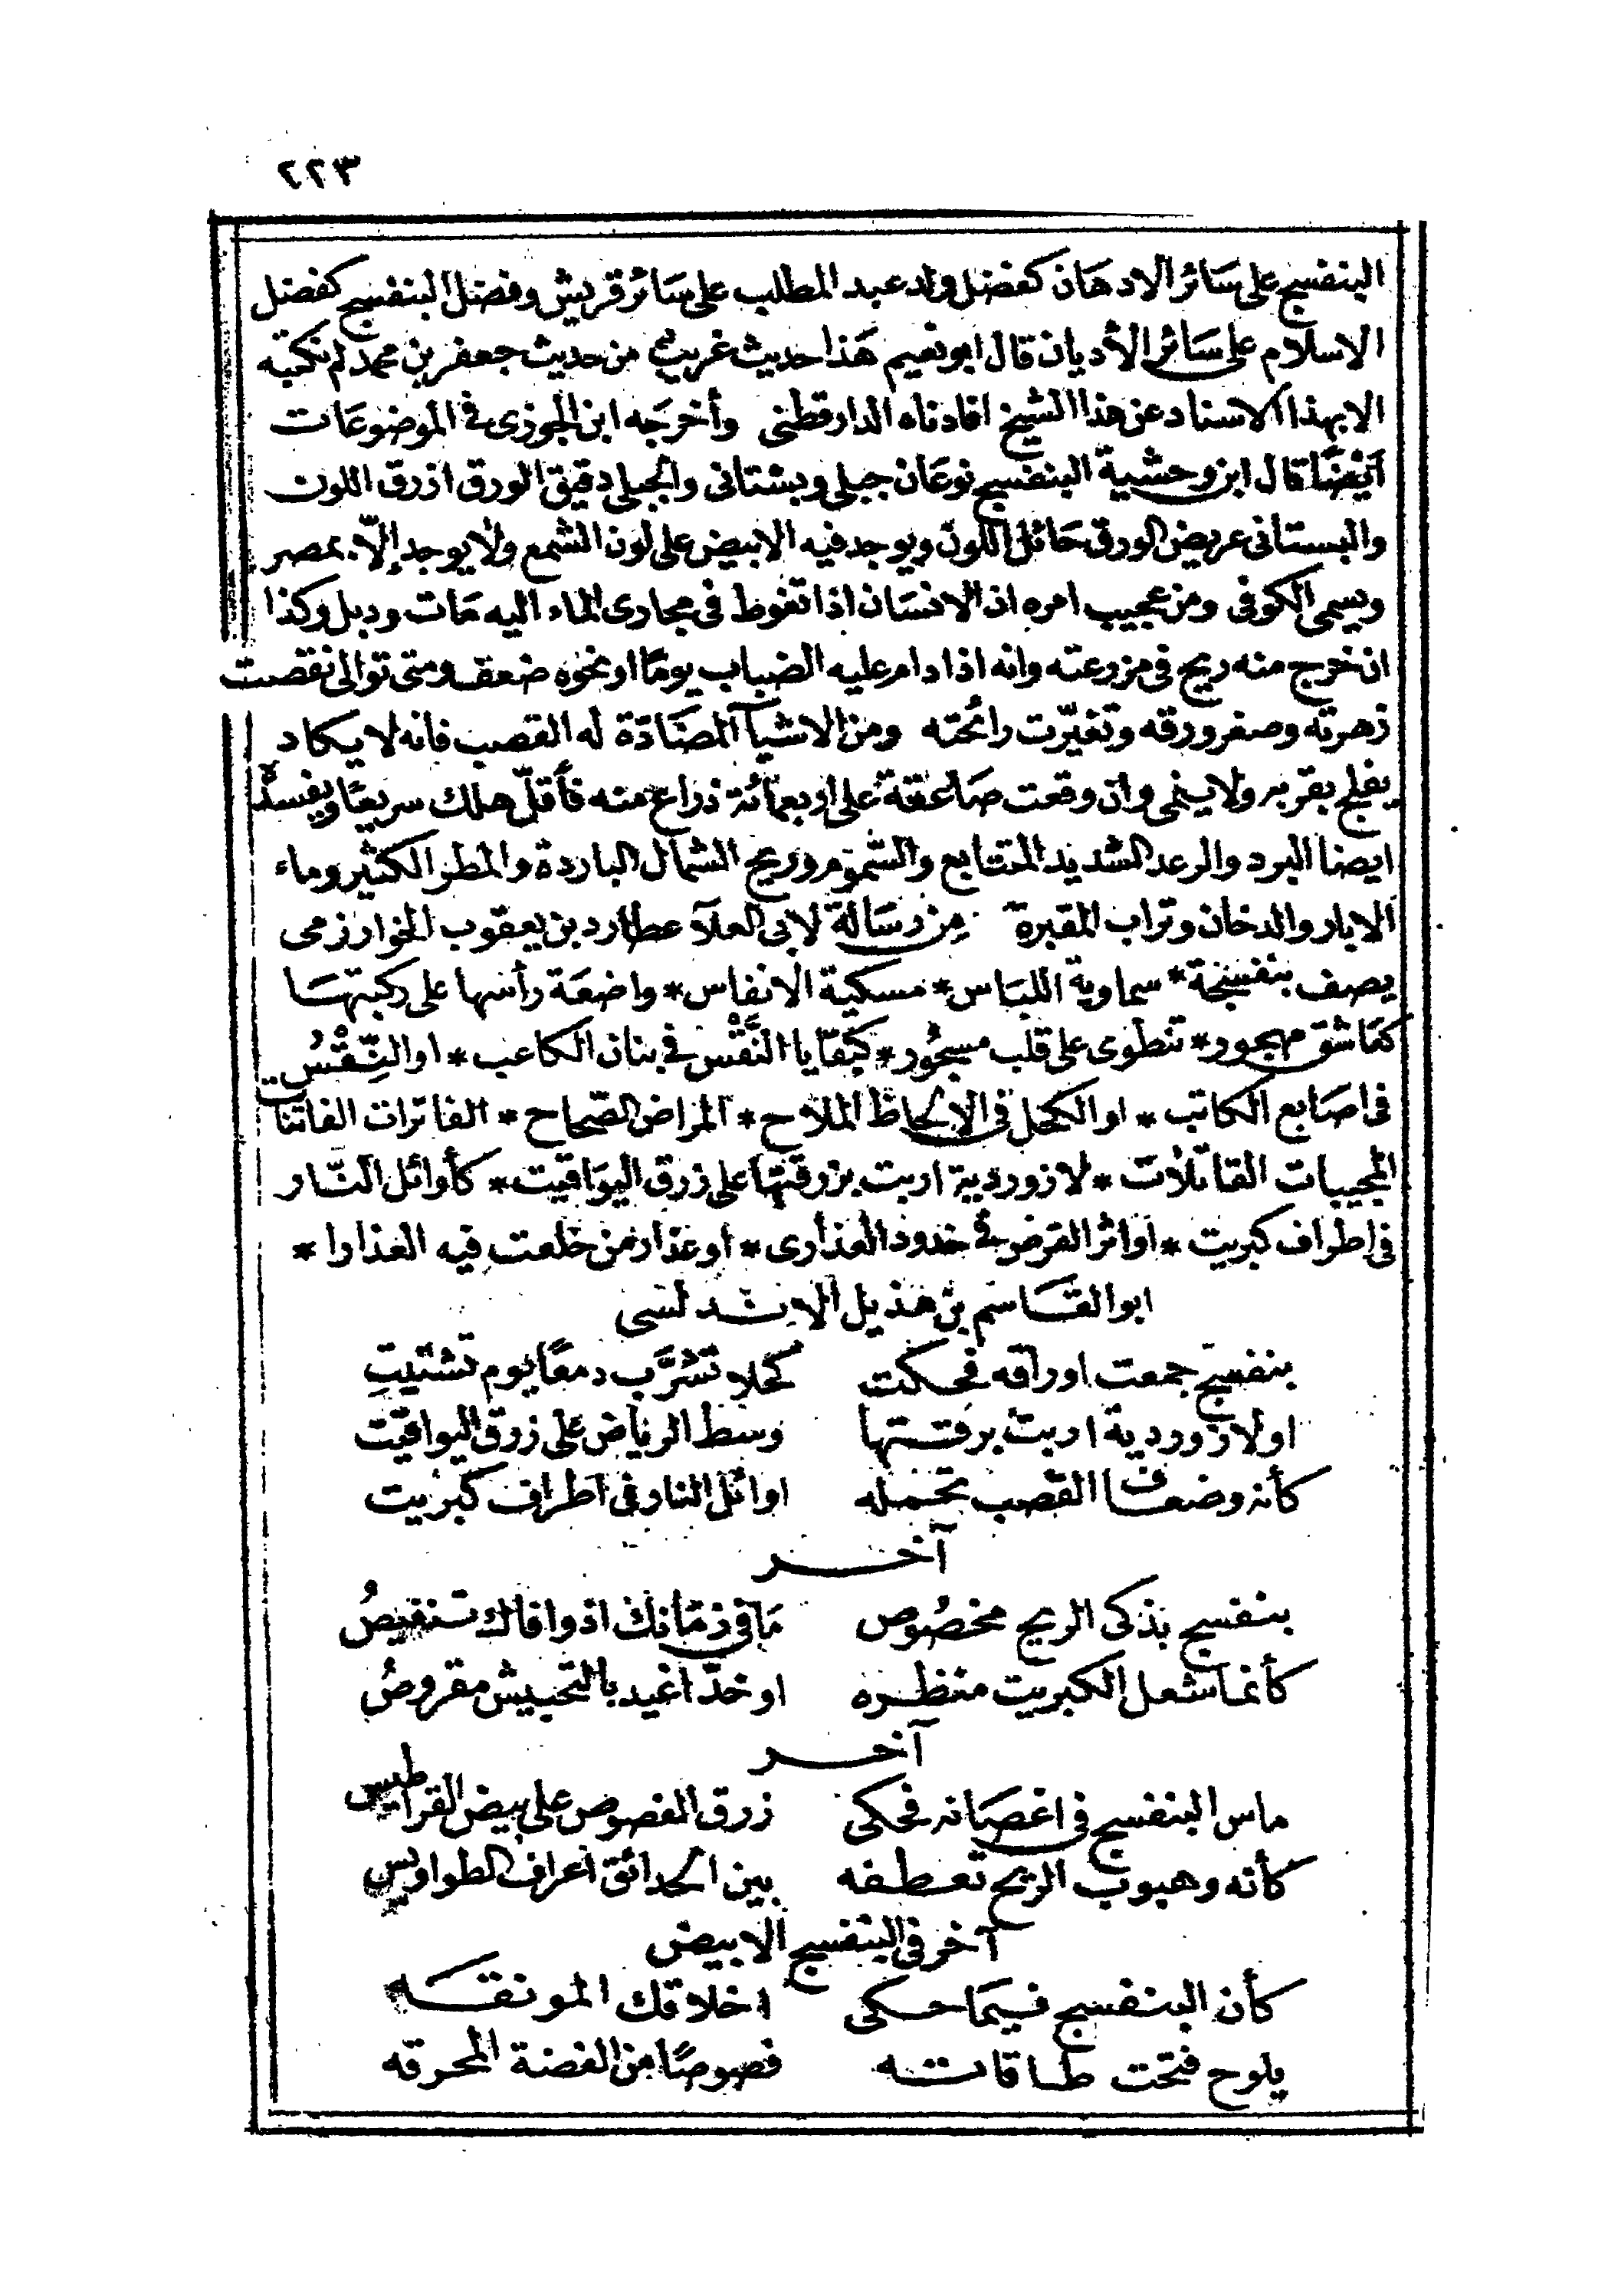 ٢٢٣
البنفسج على سَائر الادهَان كفضل ولد عبد المطلب على سَائر قريش وفضل البنفسج كفضل
الاسلام على سَائر الأديان قال ابو نعيم هَذا حديث غريب من حديث جعفر بن محمد لم نكتبه
الا بهذا الاسناد عن هذا الشيخ افادناه الدارقطنى وأخرجَه ابن الجوزى فى الموضوعَات
أيضًا قال ابن وحشية البنفسج نوعَان جبلى وبستانى والجبلى دقيق الورق ازرق اللون
والبستانى عريض الورق حَائل اللون ويوجد فيه الابيض على لون الشمع ولا يوجد إلاّ بمصر
ويسمى الكوفى ومن عجيب امره ان الانسَان اذا تغوط فى مجارى الماء اليه مَات وذبل وكذا
ان خرج منه ريح فى مزرعته وانه اذا دام عليه الضباب يومًا او نحوه ضعف ومتى توالى نقصت
زهرته وصغر ورقه وتغيّرت رائحته ومن الاشيآ المضَادّة له القصب فانه لا يكاد
يفلح بقربه ولا ينمى وان وقعت صَاعقة على اربعمائة ذراع منه فأقلّ هلك سريعًا ويفسدْه
ايضا البرد والرعد الشديد المتتابع والسّموم وريح الشمال الباردة والمطر الكثير وماء
الابار والدخان وتراب المقبرة مِن رسَالة لابى العلآ عطارد بن يعقوب الخوارزمى
يصف بنفسجة * سماوية اللبَاس * مسكية الانفاس * واضعَة رأسها على ركبتهَا
كعَاشق مهجور * تنطوى على قلب مسجُور * كبَقايا النَّقْس فى بنان الكاعب * او النِّقْسُ
فى اصَابع الكاتب * او الكحل فى الالحاظ الملاح * المراض الصّحاح * الفاترات الفاتنات
المجيبات القاتلات * لازوردية اربت بزرقتها على زرق اليوَاقيت * كأوائل النّار
فى اطراف كبريت * او اثر القرض فى خدود العذارى * او عذار من خلعت فيه العذارا *
ابو القَاسم بن هذيل الاندلسى
بنفسج جمعت اوراقه فحكت كحلا تشرَّب دمعًا يوم تشتيتِ
او لازوردية اربت برقتها وسط الرياض على زرق اليواقيت
كأنه وضعاف القضب تحمله اوائل النار فى اطراف كبريت
آخر
بنفسج بذكى الريح مخصُوص مَا فى زمَانك اذ وافاك تنغيصُ
كأنما شعل الكبريت منظره او خدّ اغيد بالتخميش مقروصُ
آخر
ماس البنفسج فى اغصَانه فحكى زرق الفصوص على بيض القراطيس
كأنه وهبوب الريح تعطفه بين الحدائق اعراف الطواويس
آخر فى البنفسج الابيض
كأن البنفسج فيمَا حكى اخلاقك المونقَه
يلوح فتحت طاقاته فصوصًا من الفضة المحرقه